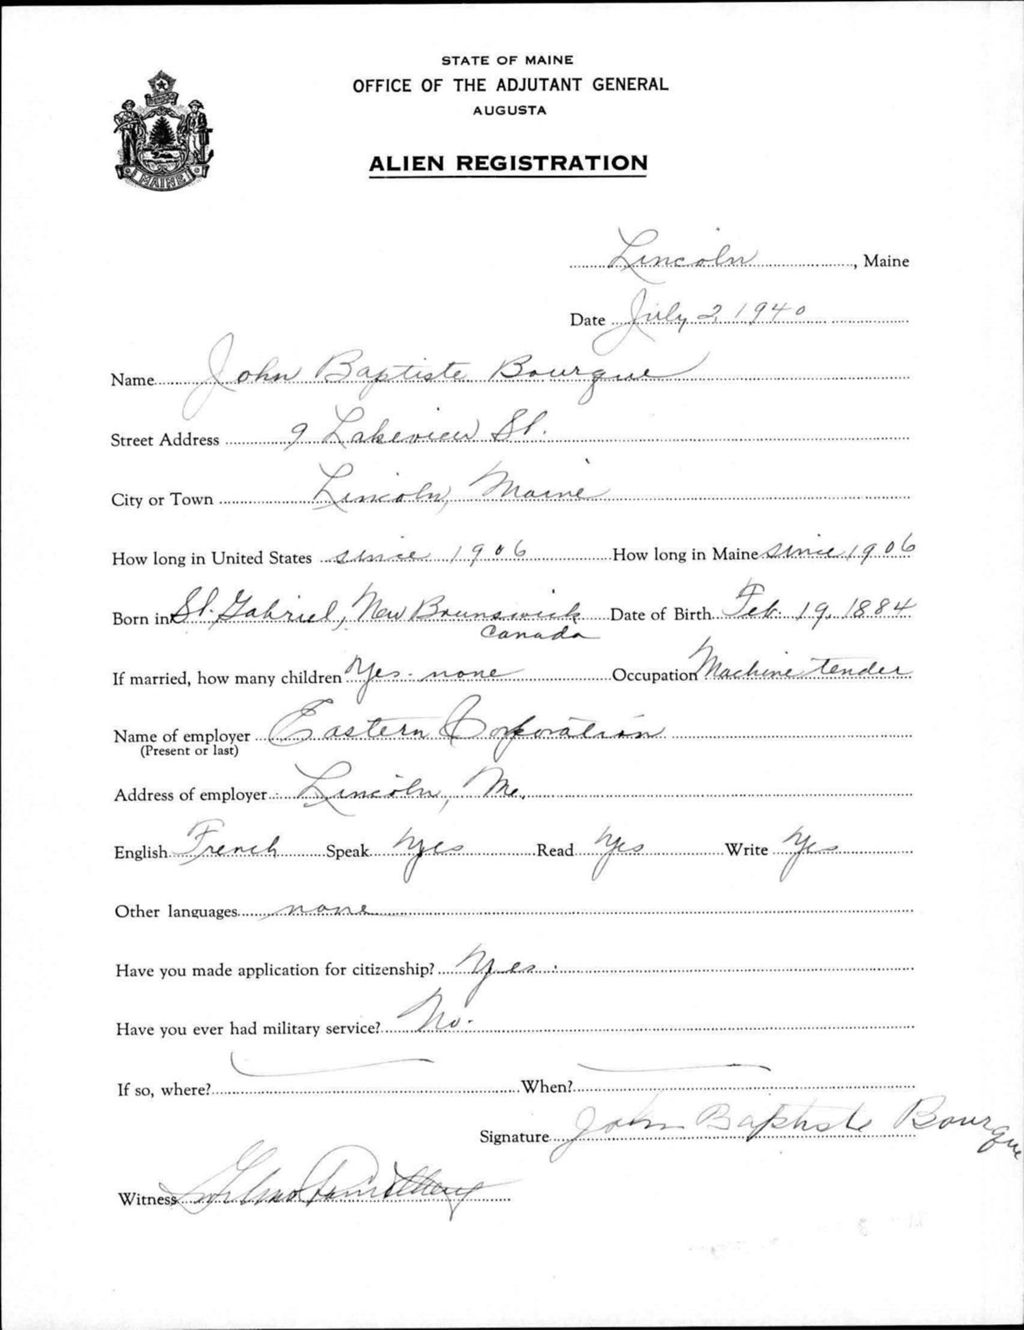 STATE OF MAINE
OFFICE OF THE ADJUTANT GENERAL
AUGUSTA
ALIEN REGISTRATION
MAINE
Lincoln, Maine
Date July 2, 1940
Name John Baptiste Bourgue
Street Address 9 Lakeview St.
City or Town Lincoln, Maine
How long in United States since 1906 How long in Maine since 1906
Born in St. Gabriel, New Brunswick Date of Birth Feb. 19, 1884
Canada
If married, how many children Yes - none Occupation Machine tender
Name of employer Eastern Corporation
(Present or last)
Address of employer Lincoln, Me.
English French Speak Yes Read Yes Write Yes
Other languages none
Have you made application for citizenship? Yes.
Have you ever had military service? No.
If so, where? When?
Signature John Baptiste Bourgue
Witness